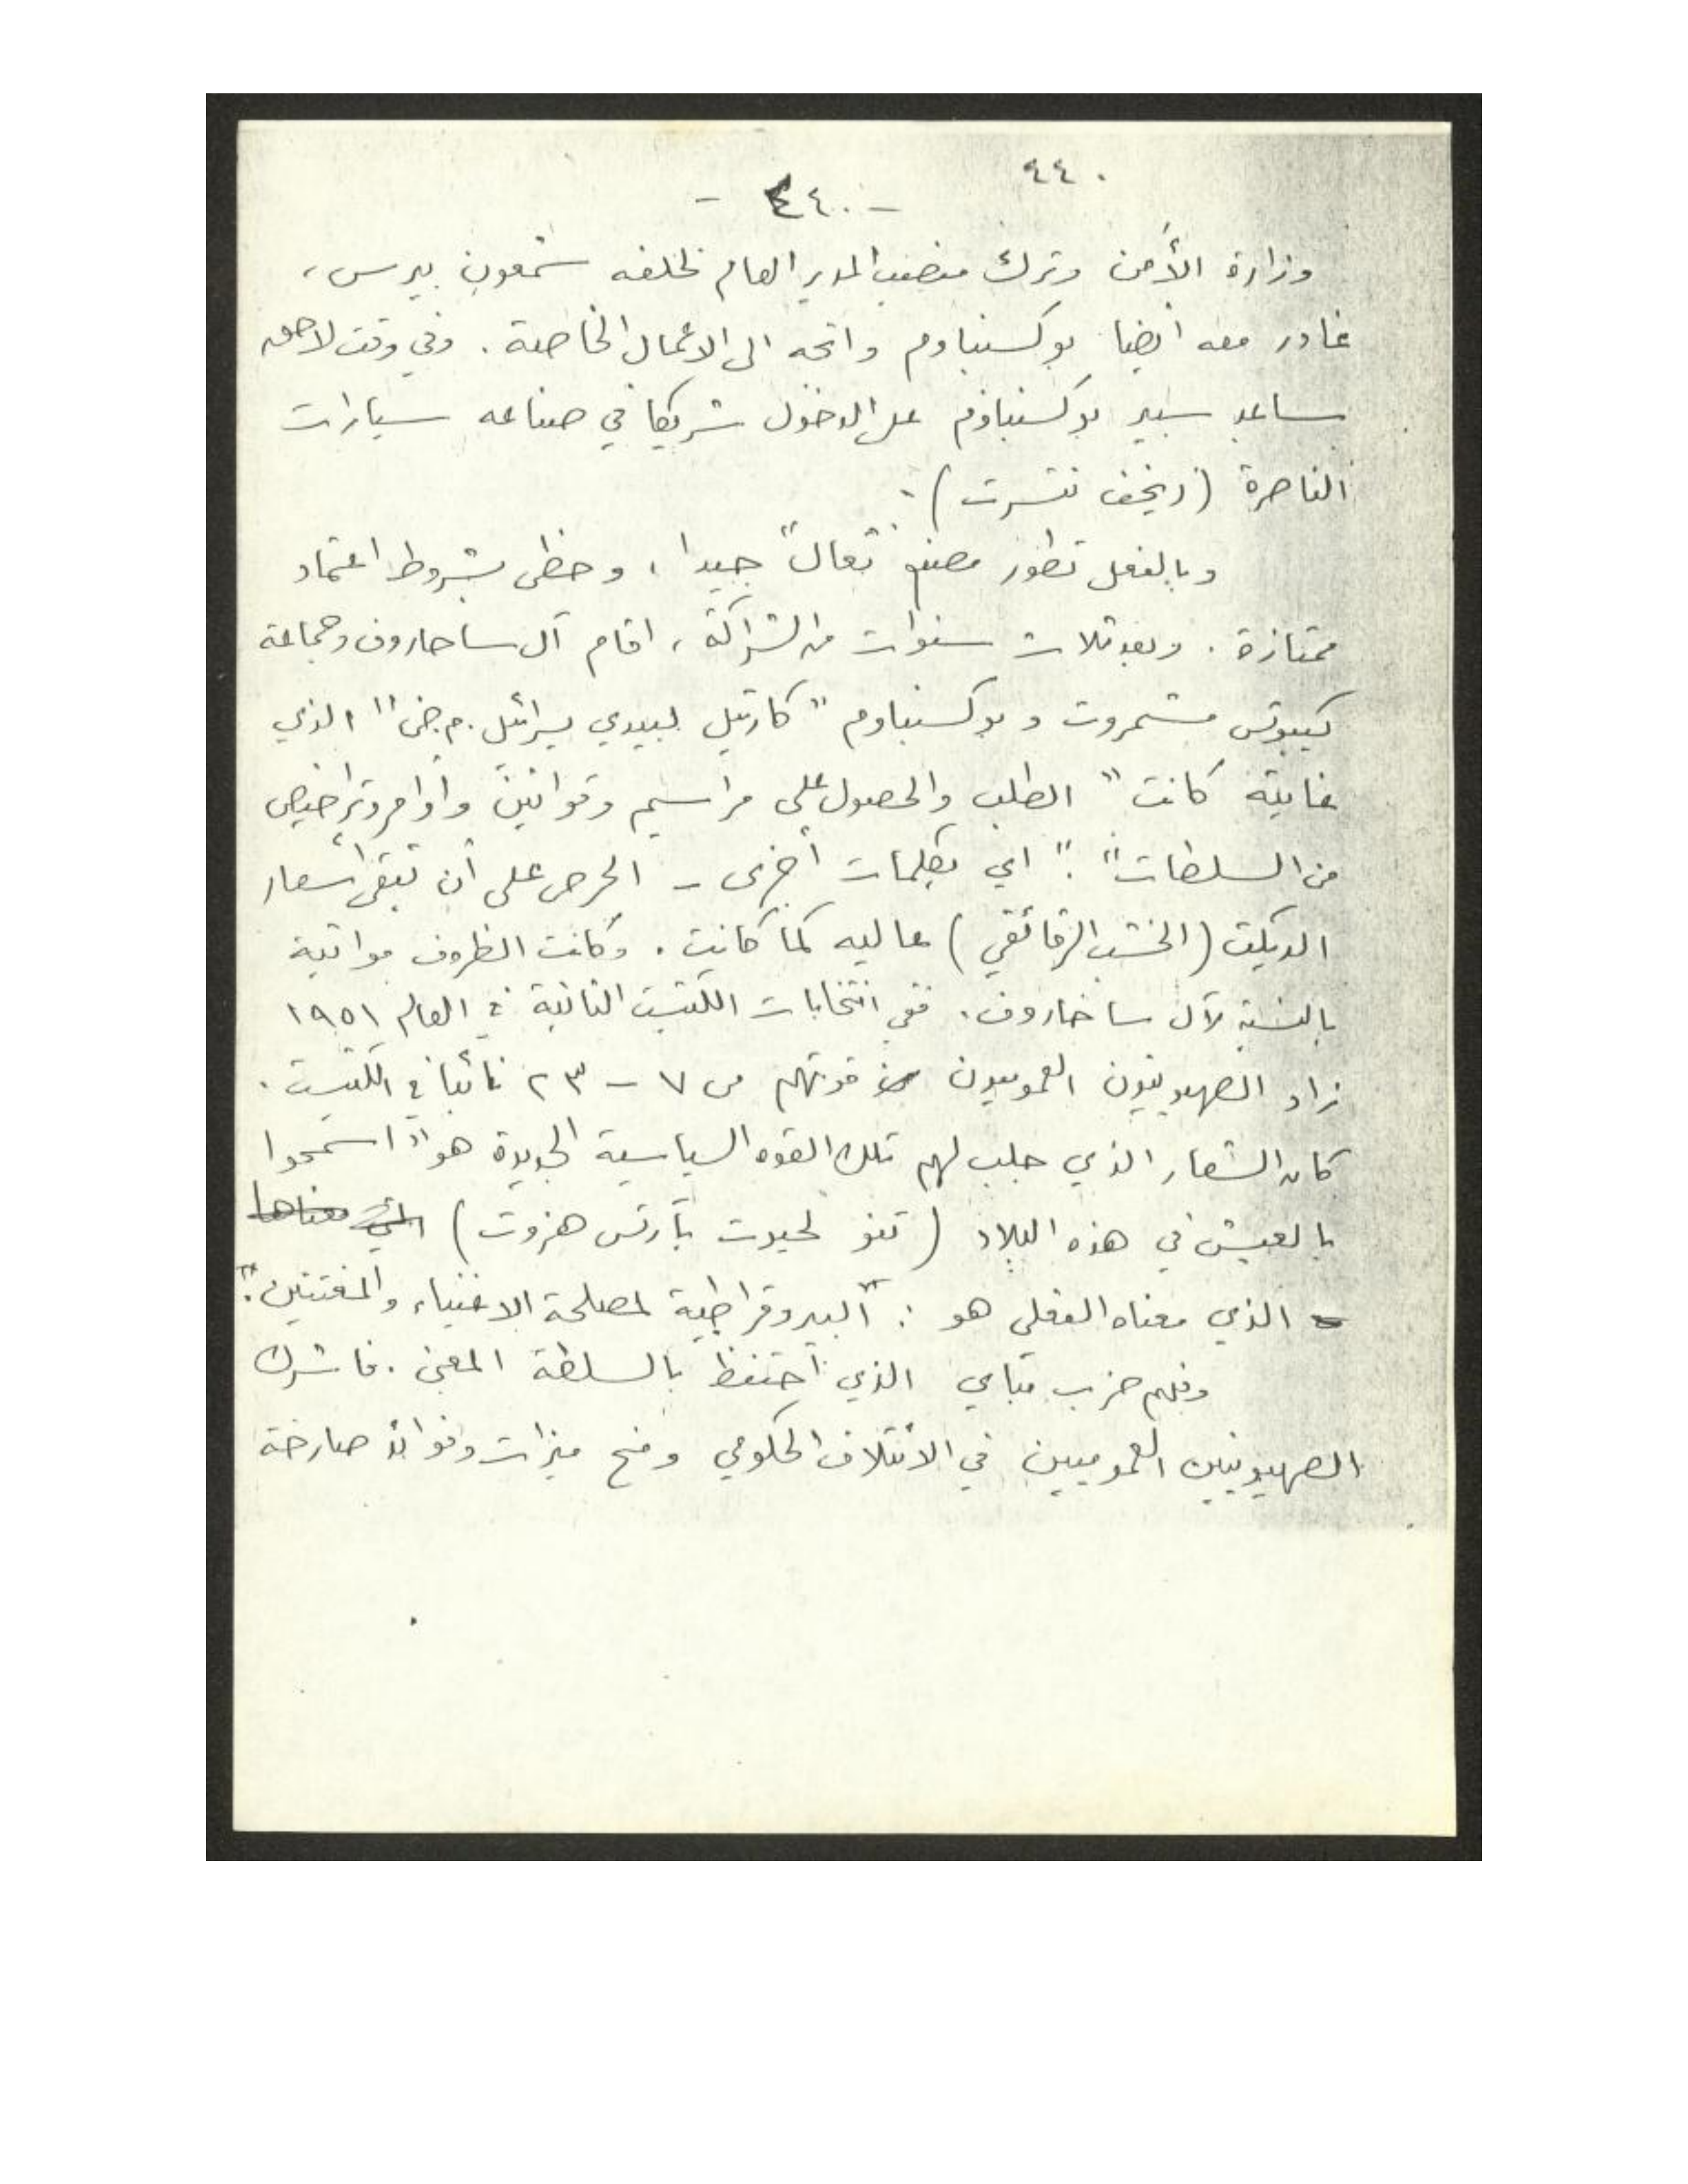 ٤٤٠
- ٤٤٠ -
وزارة الأمن وترك منصب المدير العام لخلفه شمعون بيرس،
غادر معه أيضا بوكسنباوم واتجه الى الاعمال الخاصة. وفي وقت لاحق
ساعد سبير بوكسنباوم على الدخول شريكا في صناعه سيارات
الناصرة (ريخف نتسرت).
وبالفعل تطور مصنع "تعال" جيدا، وحظى بشروط اعتماد
ممتازة. وبعد ثلاث سنوات من الشراكة، اقام آل ساحاروف وجماعة
كيبوتس مشمروت و بوكسنباوم "كارتيل لبيدي يسرائيل.م.ض" الذي
غايته كانت "الطلب والحصول على مراسيم وقوانين وأوامر وتراخيص
من السلطات". اي بكلمات أخرى - الحرص على أن تبقى أسعار
الديكت (الخشب الرقائقي) عاليه كما كانت. وكانت الظروف مواتية
بالنسبة لآل ساخاروف. ففي انتخابات الكنيست الثانية في العام ١٩٥١
زاد الصهيونيون العموميون قوتهم من ٧ - ٢٣ نائبا في الكنيست.
كان الشعار الذي جلب لهم تلك القوه السياسية الجديدة هو "اسمحوا
بالعيش في هذه البلاد (تنو لحيوت بآرتس هزوت) التي معناها
الذي معناه الفعلي هو: "البيروقراطية لمصلحة الاغنياء والمغتنين".
وفهم حزب مباي الذي احتفظ بالسلطة المعنى. فاشرك
الصهيونيين العموميين في الائتلاف الحكومي ومنح ميزات وفوائد صارخة